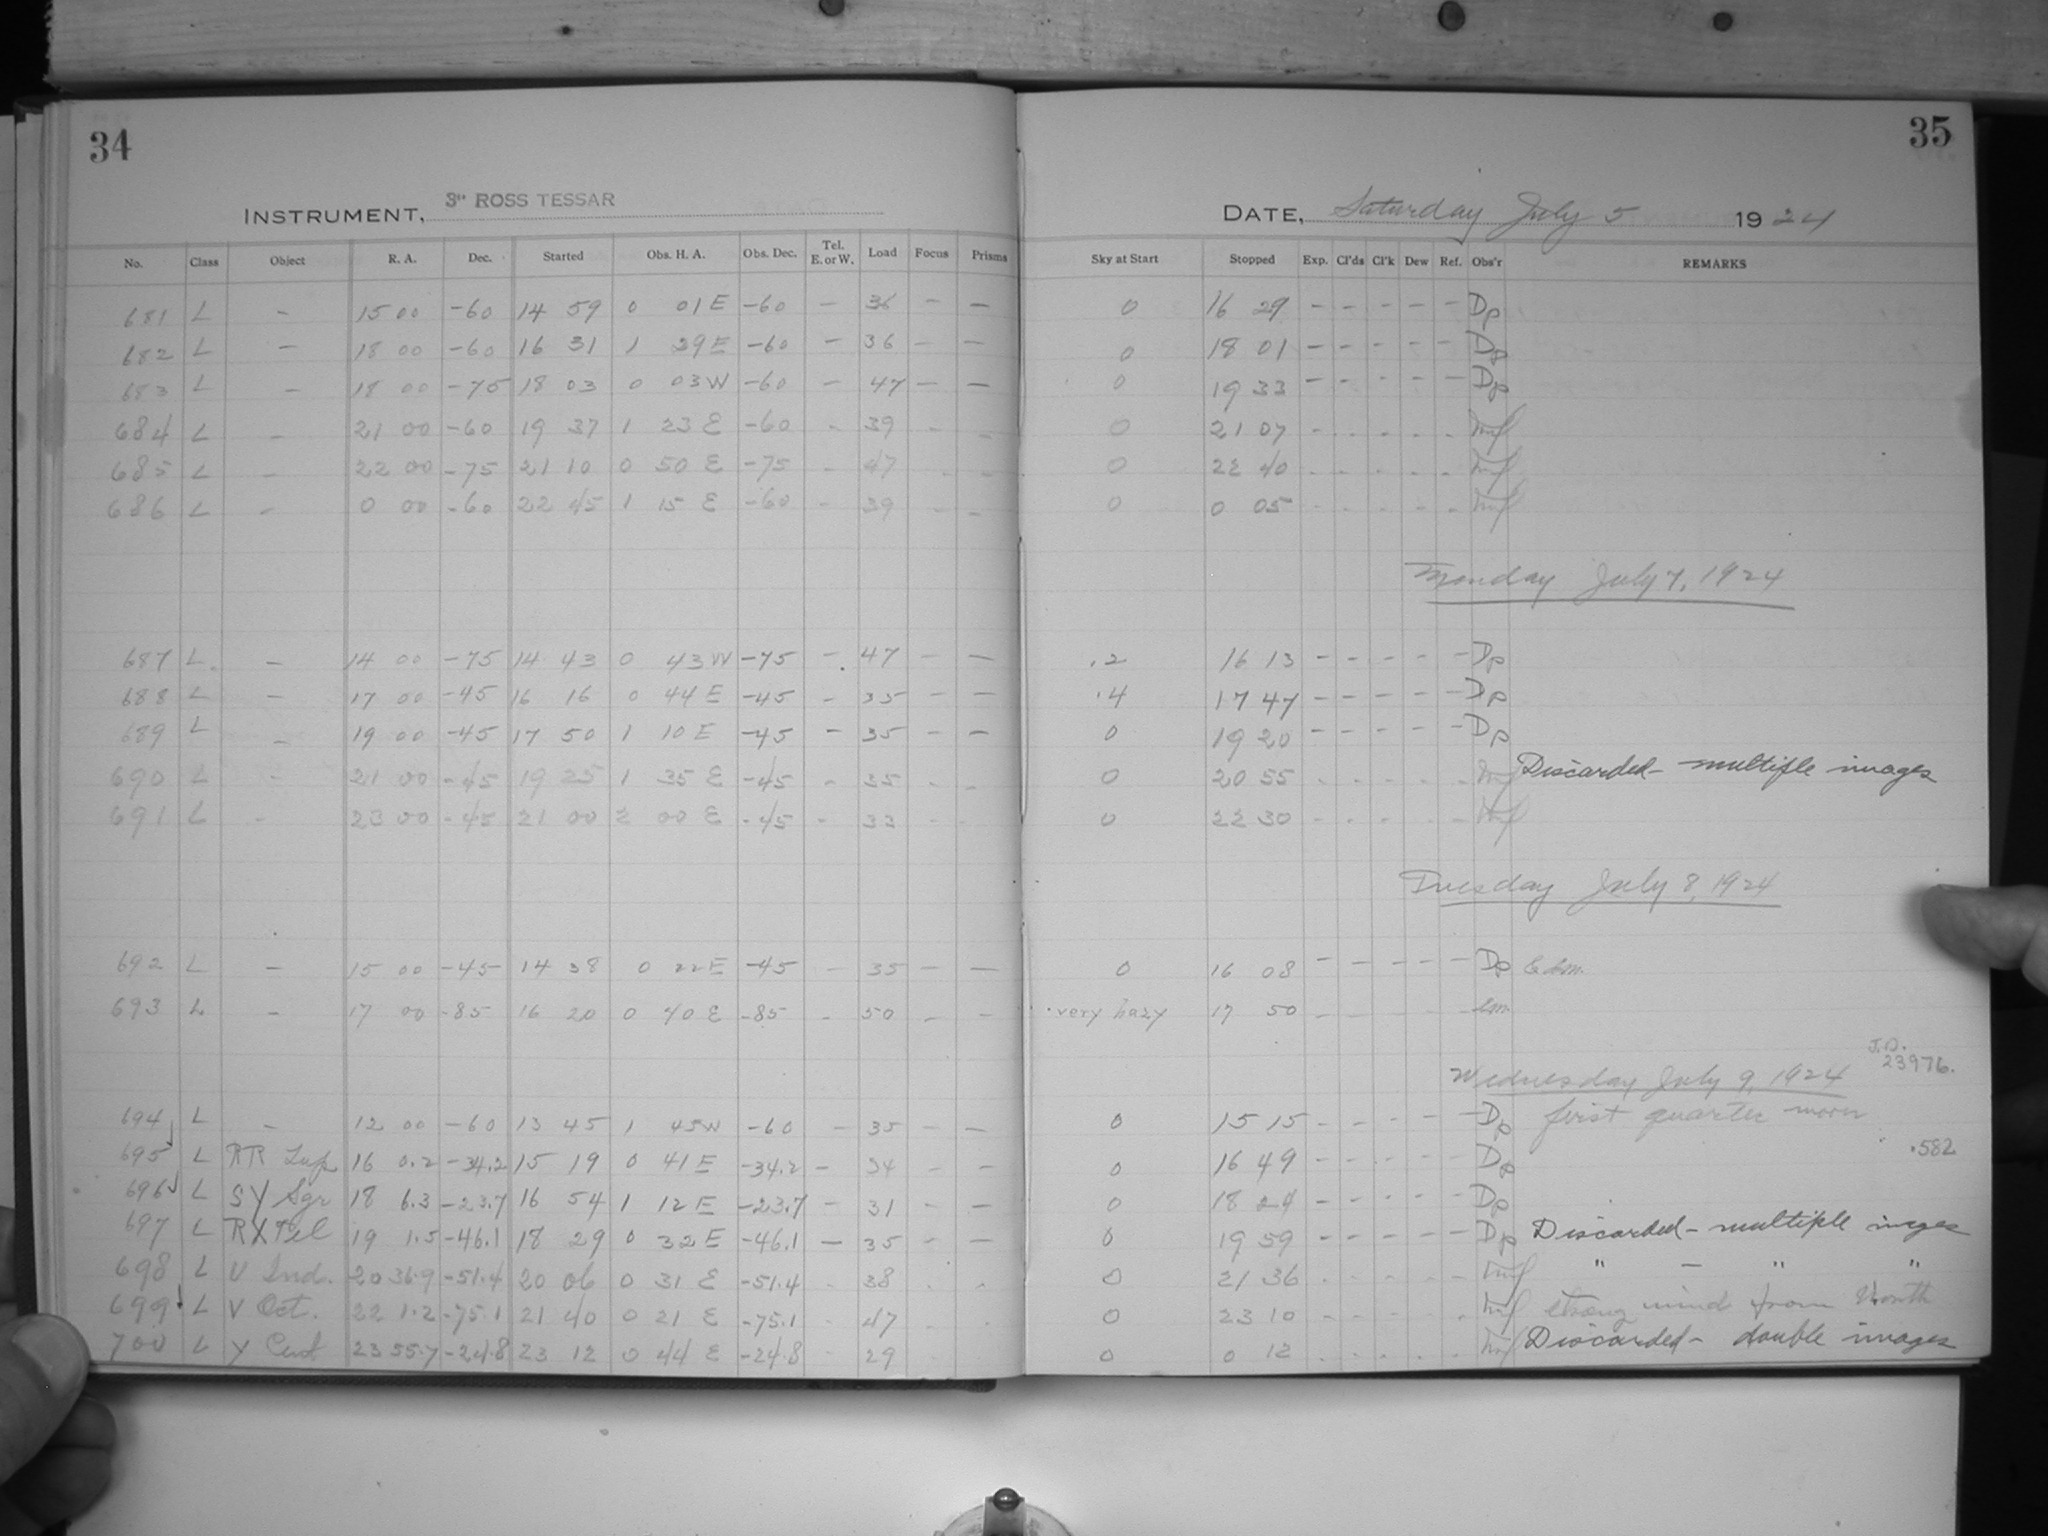 34
INSTRUMENT, 3" ROSS TESSAR
No. Class Object R. A. Dec. Started Obs. H. A. Obs. Dec. Tel. E. or W. Load Focus Prisms
681 L - 15 00 -60 14 59 0 01 E -60 - 36 - -
682 L - 18 00 -60 16 31 1 29 E -60 - 36 - -
683 L - 18 00 -75 18 03 0 03 W -60 - 47 - -
684 L - 21 00 -60 19 37 1 23 E -60 - 39 - -
685 L - 22 00 -75 21 10 0 50 E -75 - 47 - -
686 L - 0 00 -60 22 45 1 15 E -60 - 39 - -
687 L. - 14 00 -75 14 43 0 43 W -75 - 47 - -
688 L - 17 00 -45 16 16 0 44 E -45 - 35 - -
689 L - 19 00 -45 17 50 1 10 E -45 - 35 - -
690 L - 21 00 -45 19 25 1 35 E -45 - 35 - -
691 L - 23 00 -45 21 00 2 00 E -45 - 33 - -
692 L - 15 00 -45 14 38 0 22 E -45 - 35 - -
693 L - 17 00 -85 16 20 0 40 E -85 - 50 - -
694 L - 12 00 -60 13 45 1 45 W -60 - 35 - -
695 L RR Lup 16 0.2 -34.2 15 19 0 41 E -34.2 - 34 - -
696 L SY Sgr 18 6.3 -23.7 16 54 1 12 E -23.7 - 31 - -
697 L RX Tel 19 1.5 -46.1 18 29 0 32 E -46.1 - 35 - -
698 L U Ind. 20 36.9 -51.4 20 06 0 31 E -51.4 - 38 - -
699 L V Oct. 22 1.2 -75.1 21 40 0 21 E -75.1 - 47 - -
700 L Y 23 55.7 -24.8 23 12 0 44 E -24.8 - 29
35
DATE, Saturday July 5 1924
Sky at Start Stopped Exp. Cl'ds Cl'k Dew Ref. Obs'r REMARKS
0 16 29 - - - - - Dp
0 18 01 - - - - - Dp
0 19 33 - - - - - Dp
0 21 07 - - - - -
0 22 40 - - - - -
0 0 05 - - - - -
Monday July 7, 1924
.2 16 13 - - - - - Dp
.4 17 47 - - - - - Dp
0 19 20 - - - - - Dp
0 20 55 - - - - - Discarded - multiple images
0 22 30 - - - - -
Tuesday July 8, 1924
0 16 08 - - - - - Dp
very hazy 17 50 - - - - -
J.D. 23976.
Wednesday July 9, 1924
0 15 15 - - - - - Dp first quarter moon
0 16 49 - - - - - Dp .582
0 18 24 - - - - - Dp
0 19 59 - - - - - Dp Discarded - multiple images
0 21 36 - - - - - " - " "
0 23 10 - - - - - strong wind from North
0 0 12 - - - - - Discarded - double images